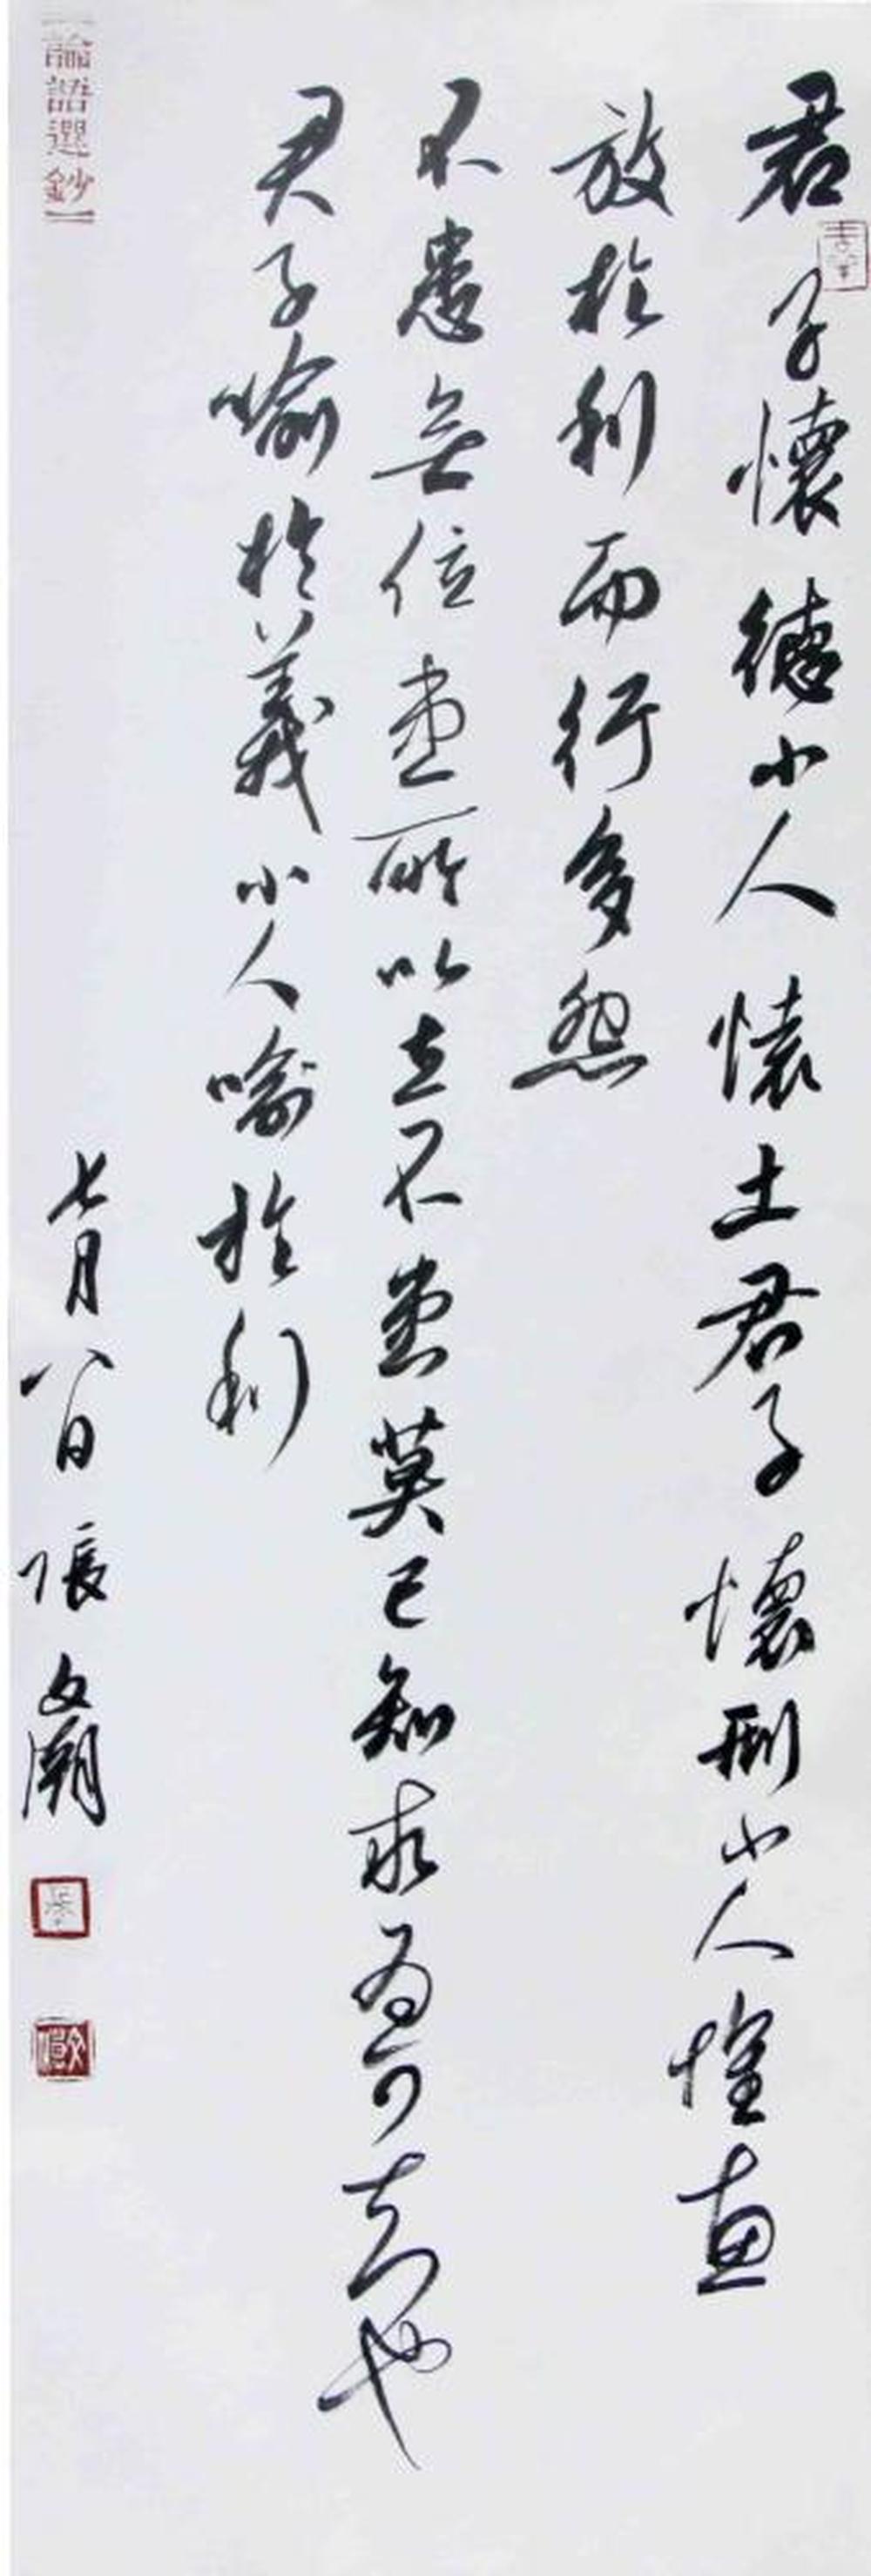 君子懷德小人懷土君子懷刑小人懷惠
放於利而行多怨
不患無位患所以立不患莫己知求為可知也
君子喻於義小人喻於利
七月八日張文瀚
論語選鈔